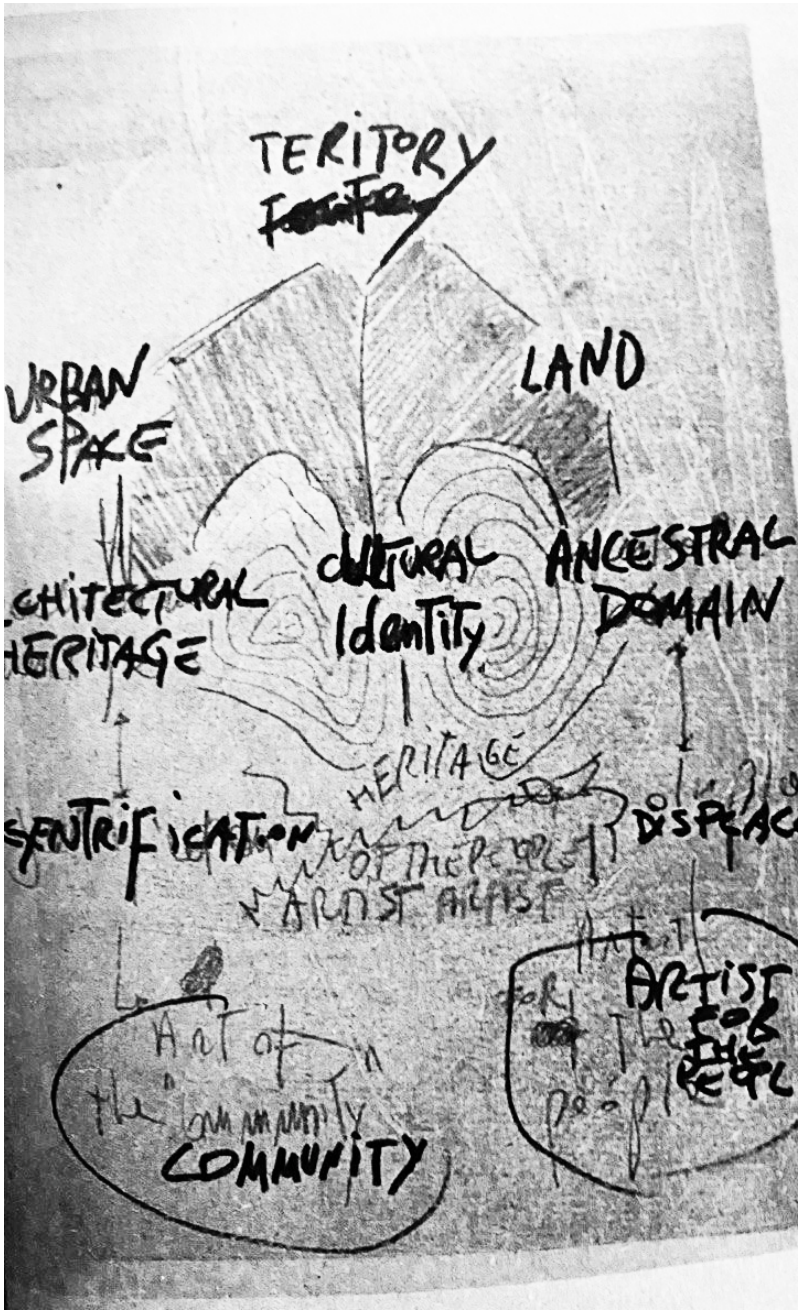 TERITORY
URBAN
SPACE
LAND
CHITECTURAL
HERITAGE
CULTURAL
Identity
ANCESTRAL
DOMAIN
HERITAGE
GENTRIFICATION
OF THE PEOPLE
DISPLAC
ARTIST ARTIST
Art of in
the "Community
COMMUNITY
FOR
the
people
ARTIST
FOR
THE
PEOPL